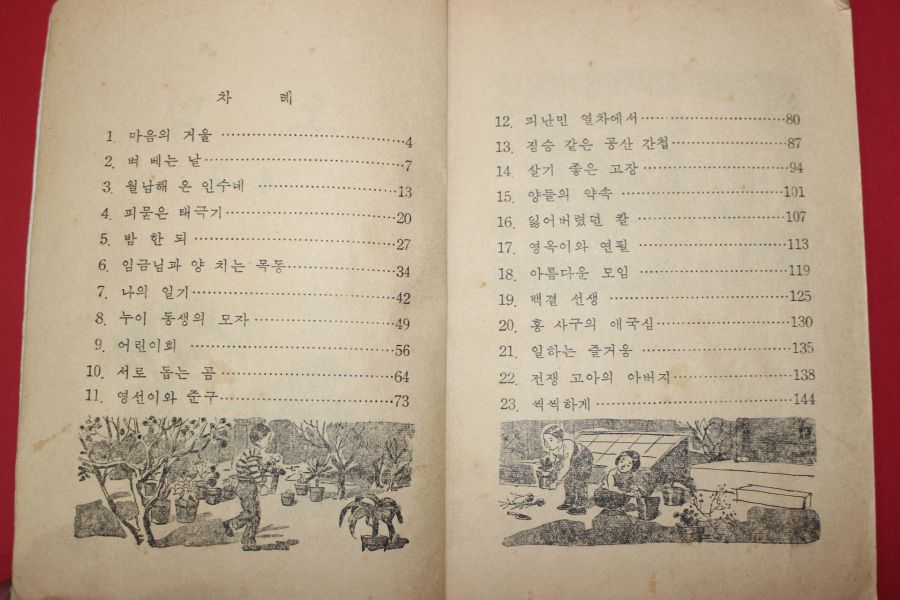 차 례
1. 마음의 거울 4
2. 벼 베는 날 7
3. 월남해 온 인수네 13
4. 피묻은 태극기 20
5. 밤 한 되 27
6. 임금님과 양 치는 목동 34
7. 나의 일기 42
8. 누이 동생의 모자 49
9. 어린이회 56
10. 서로 돕는 곰 64
11. 영선이와 준구 73
12. 피난민 열차에서 80
13. 짐승 같은 공산 간첩 87
14. 살기 좋은 고장 94
15. 양들의 약속 101
16. 잃어버렸던 칼 107
17. 영옥이와 연필 113
18. 아름다운 모임 119
19. 백결 선생 125
20. 홍 사구의 애국심 130
21. 일하는 즐거움 135
22. 전쟁 고아의 아버지 138
23. 씩씩하게 144